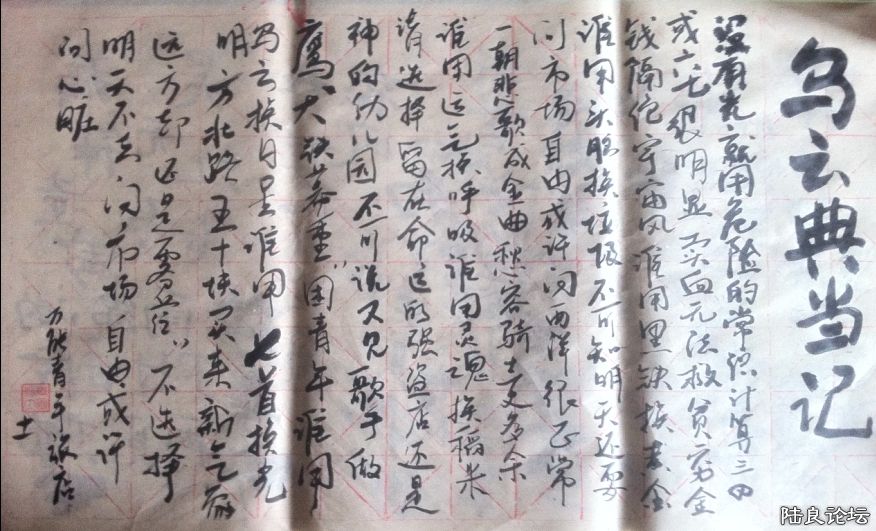 乌云典当记
没有光就用危险的常识计算三四
或六七很明显卖血无法救贫穷金
钱隔绝宇宙风谁用黑铁换黄金
谁用头脑换垃圾不可知明天还要
问市场自由或许问西洋很正常
一朝悲歌成金曲愁容骑士更多余
谁用运气换呼吸谁用灵魂换稻米
请选择留在命运的强盗店还是
神的幼儿园不可说又见歌手做
鹰犬铁幕重围青年谁用
乌云换日星谁用匕首换光
明方北路王十块买来新气
远方却还是雾 不选择
明天不去问市场自由或许
问心脏
万能青年旅店
士
陆良论坛